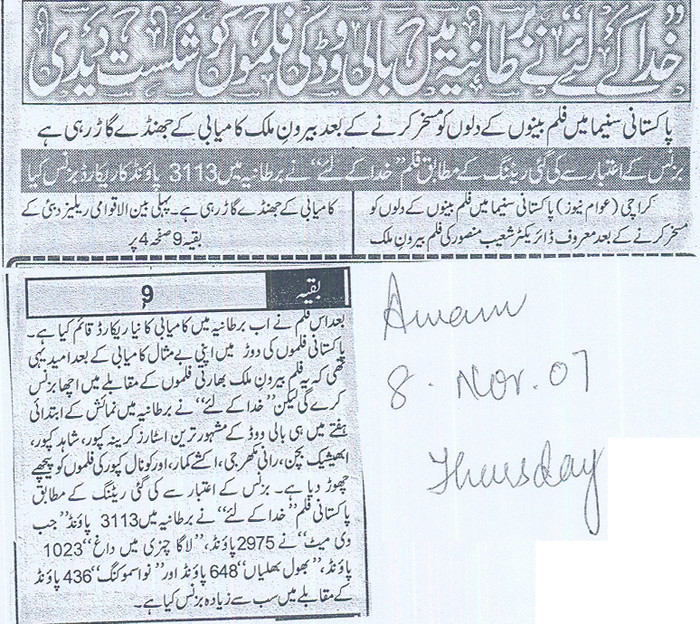 ”خدا کے لئے“ نے برطانیہ میں بالی ووڈ کی فلموں کو شکست دیدی
پاکستانی سنیما میں فلم بینوں کے دلوں کو مسخر کرنے کے بعد بیرون ملک کامیابی کے جھنڈے گاڑ رہی ہے
بزنس کے اعتبار سے کی گئی ریٹنگ کے مطابق فلم ”خدا کے لئے“ نے برطانیہ میں 3113 پاؤنڈ کا ریکارڈ بزنس کیا
کراچی (عوام نیوز) پاکستانی سنیما میں فلم بینوں کے دلوں کو
مسخر کرنے کے بعد معروف ڈائریکٹر شعیب منصور کی فلم بیرون ملک
کامیابی کے جھنڈے گاڑ رہی ہے۔ پہلی بین الاقوامی ریلیز دبئی کے
بقیہ 9 صفحہ 4 پر
بقیہ 9
بعد اس فلم نے اب برطانیہ میں کامیابی کا نیا ریکارڈ قائم کیا ہے۔
پاکستانی فلموں کی دوڑ میں اپنی بے مثال کامیابی کے بعد امید یہی
تھی کہ یہ فلم بیرون ملک بھارتی فلموں کے مقابلے میں اچھا بزنس
کرے گی لیکن ”خدا کے لئے“ نے برطانیہ میں نمائش کے ابتدائی
ہفتے میں ہی بالی ووڈ کے مشہور ترین اسٹارز کرینہ کپور، شاہد کپور،
ابھیشیک بچن، رانی مکھرجی، اکشے کمار، اور کونال کپور کی فلموں کو پیچھے
چھوڑ دیا ہے۔ بزنس کے اعتبار سے کی گئی ریٹنگ کے مطابق
پاکستانی فلم ”خدا کے لئے“ نے برطانیہ میں 3113 پاؤنڈ ”جب
وی میٹ“ نے 2975 پاؤنڈ، ”لاگا چنری میں داغ“ 1023
پاؤنڈ، ”بھول بھلیاں“ 648 پاؤنڈ اور ”نو اسموکنگ“ 436 پاؤنڈ
کے مقابلے میں سب سے زیادہ بزنس کیا ہے۔
Awam
8. Nov. 07
Thursday